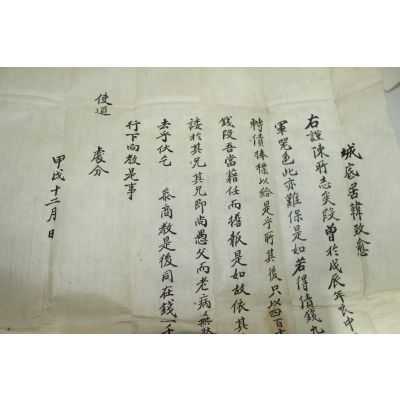 城底居韓致愈
右謹陳所志矣段曾於戊辰年
軍器色此亦難保是如若得債錢九
轉債捧標以給是乎所其後只以四百
錢段吾當藉任而獲報是如故依其
諉於其兄其兄即尙愚父而老病無狀
去乎伏乞 參商敎是後同在錢一千
行下向敎是事
使道 處分
甲戌十二月 日